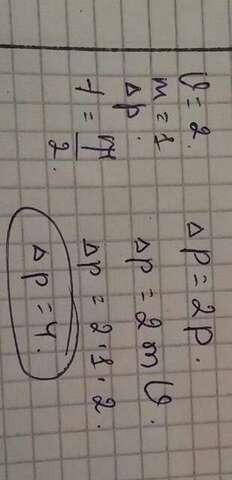 υ = 2.
m = 1
Δp.
t = T/2.
Δp = 2p.
Δp = 2mυ.
Δp = 2·1·2.
Δp = 4.